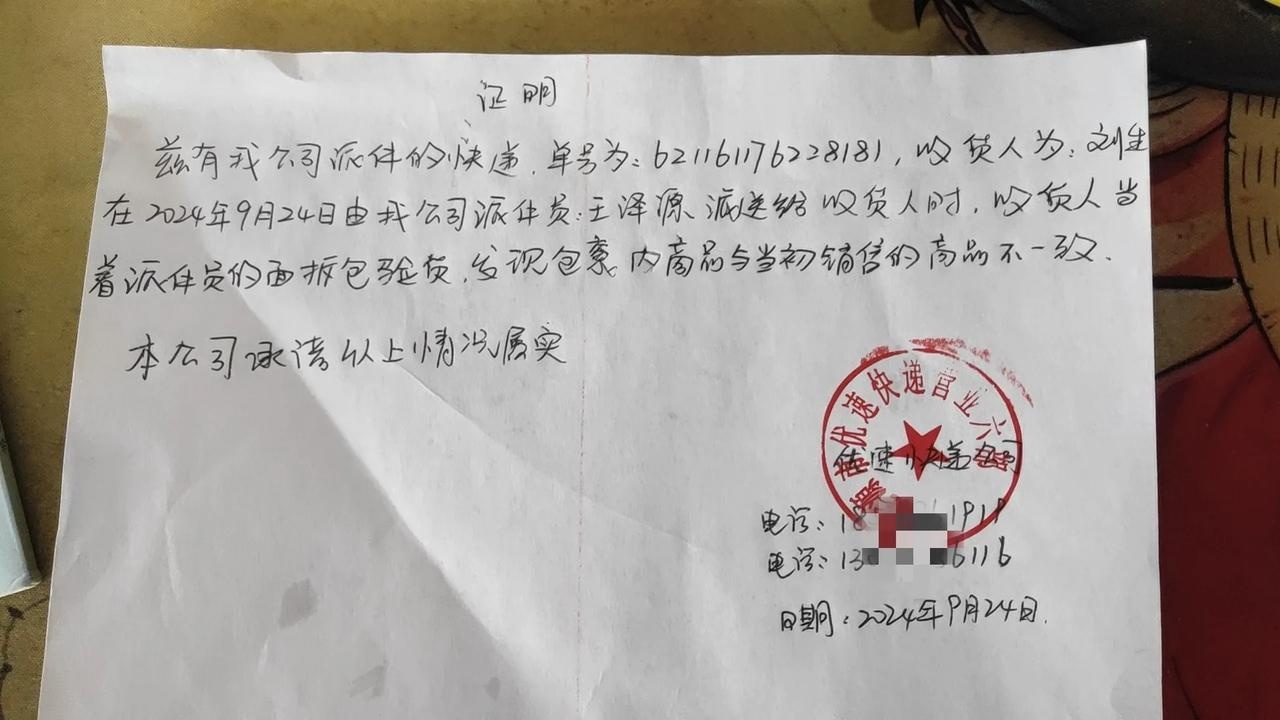 证明
兹有我公司派件的快递,单号为:621161176228181,收货人为:刘生
在2024年9月24日由我公司派件员:王泽源、派送给收货人时,收货人当
着派件员的面拆包验货,发现包裹内商品与当初销售的商品不一致.
本公司承诺以上情况属实
优速快递营业六
优速快递公司
电话:18 1919
电话:13 6116
日期:2024年9月24日.